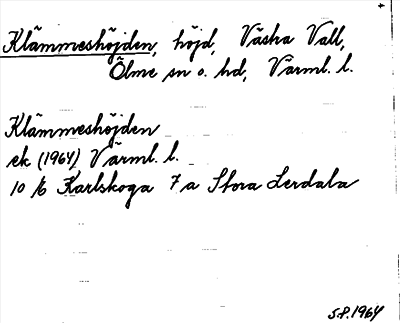 Klämmeshöjden, höjd, Västra Vall,
Ölme sn o. hd, Värml. l.
Klämmeshöjden
ek (1964) Värml. l.
10 /6 Karlskoga 7 a Stora Lerdala
S.P. 1964